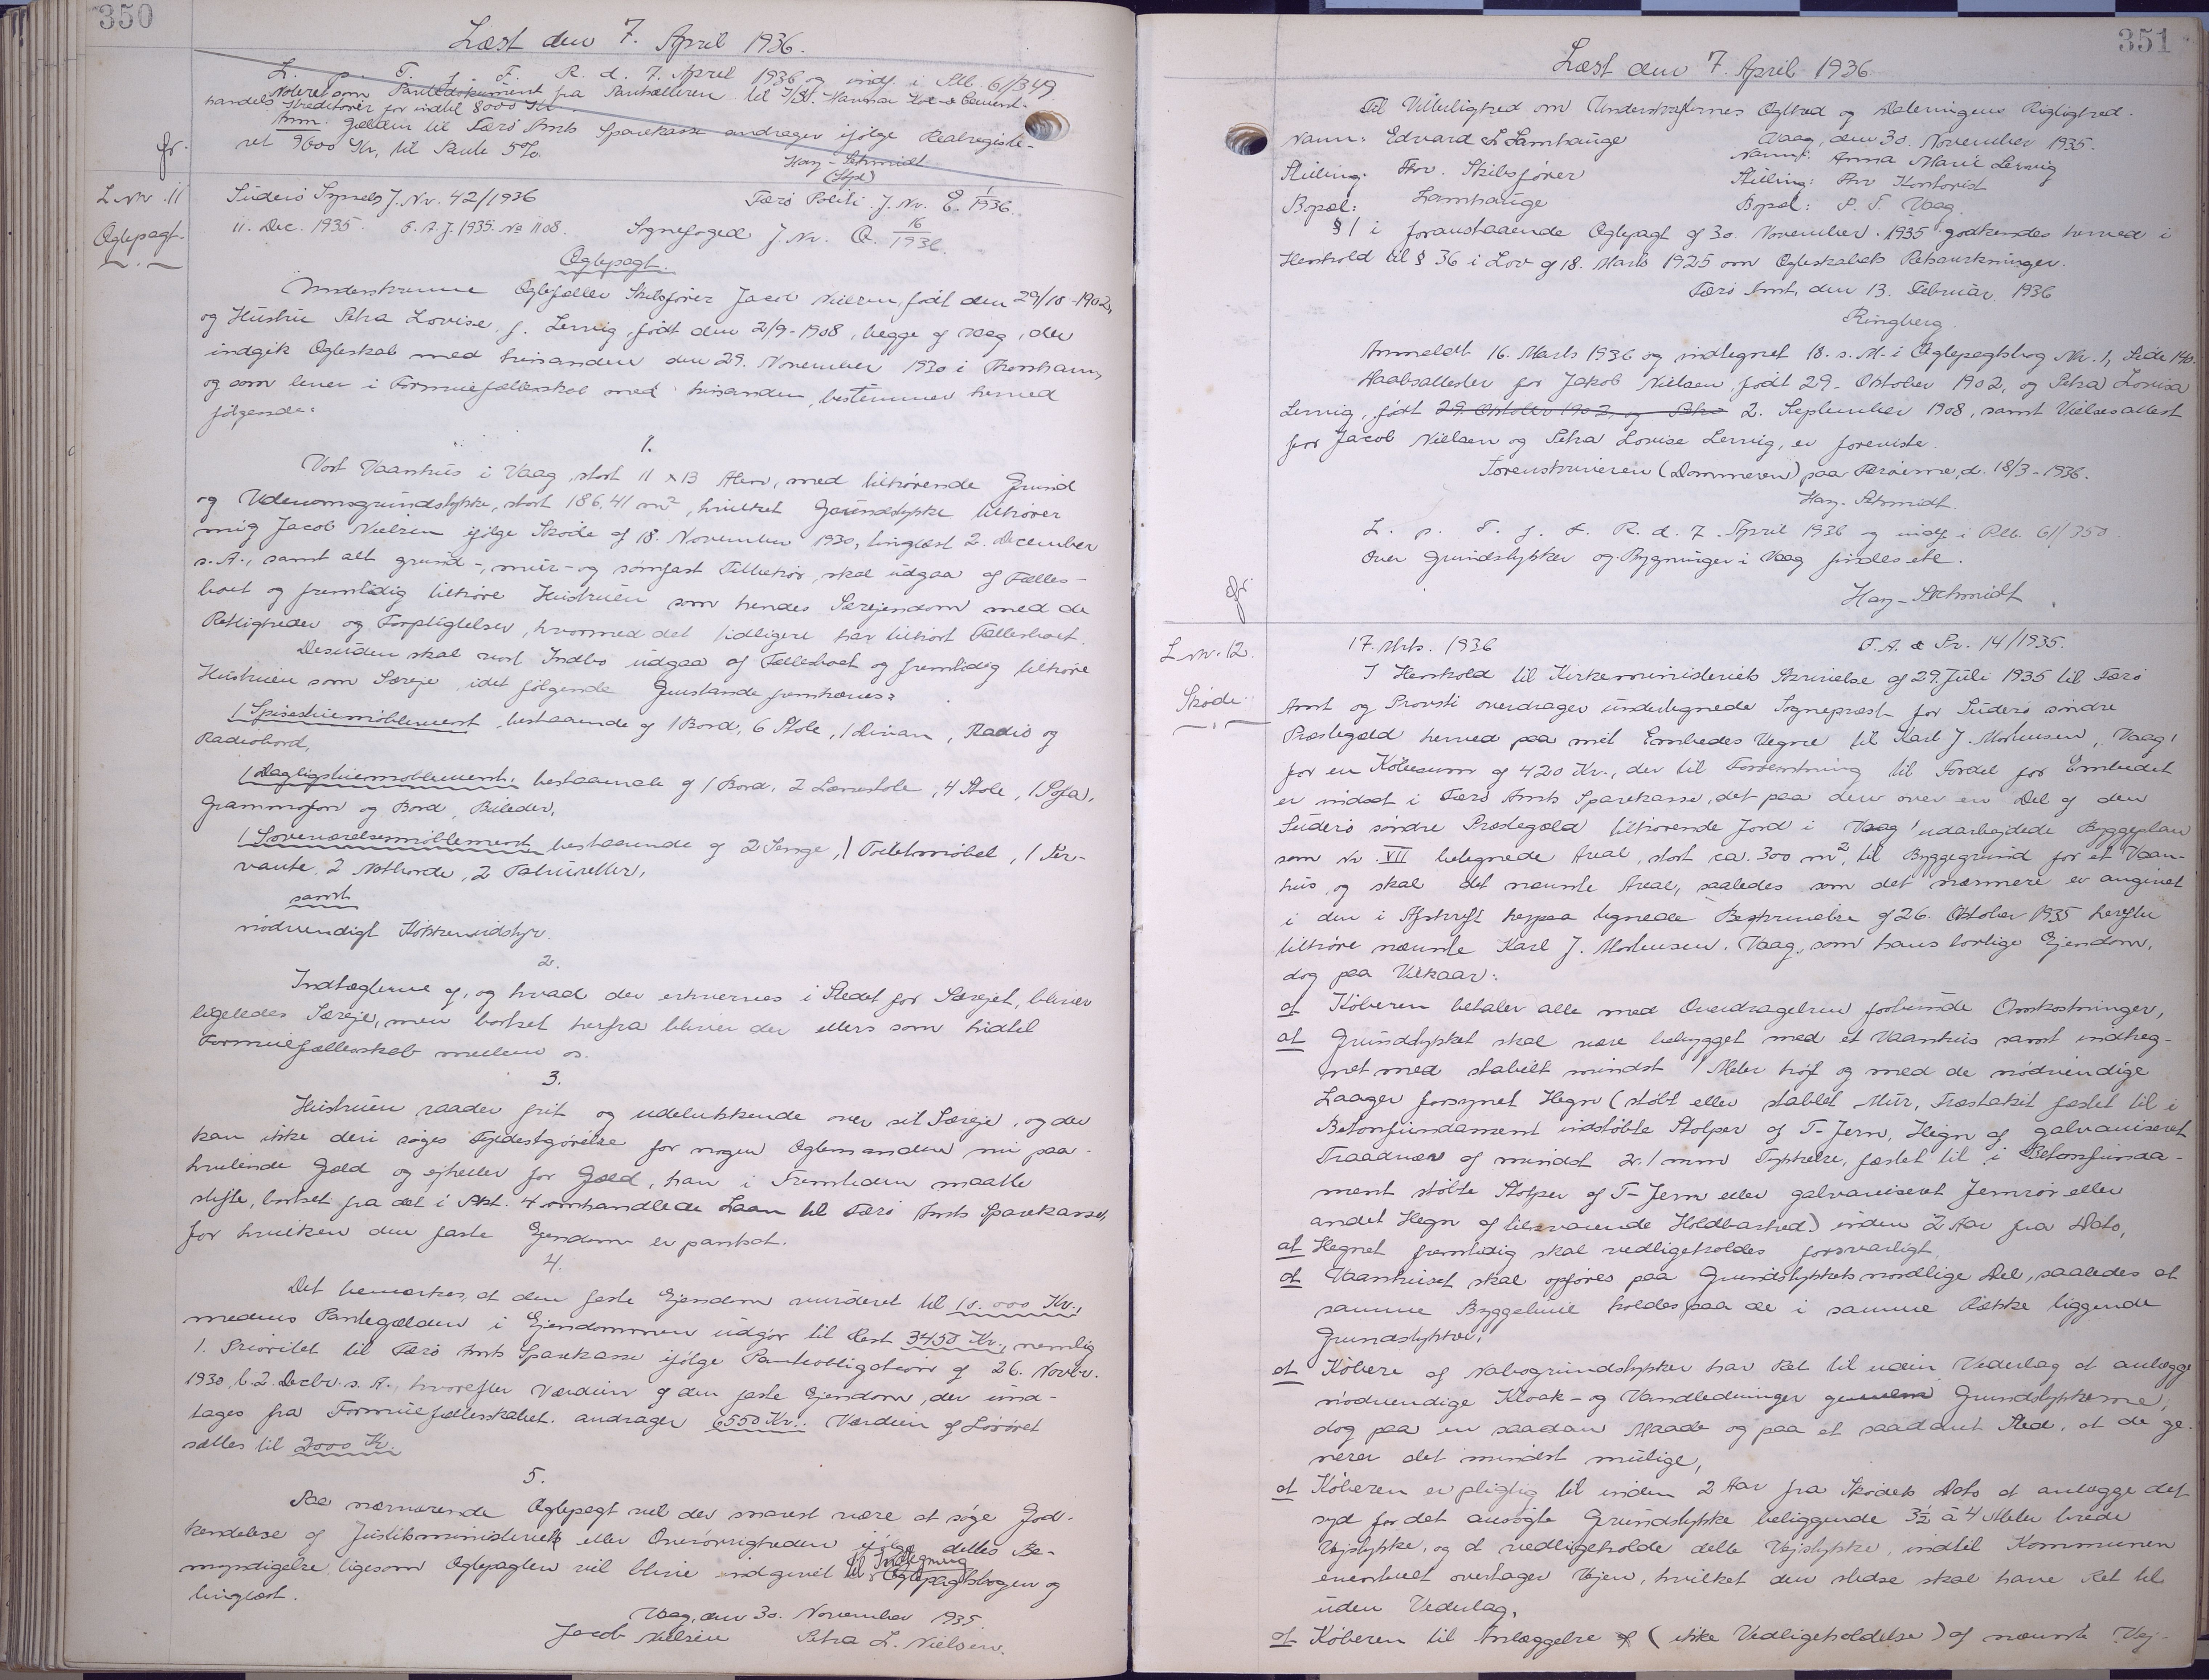 350
Læst den 7. April 1936.
L. p. T. f. F. R. d. 7. April 1936 og indf. i Ptb. 61/349
Noteret som Pantedokument fra Panthaveren til I/S. Kul & Cement-
handels Kreditorer for indtil 8000 Kr.
Anm: Gælden til Færø Amts Sparekasse andrager ifølge Realregiste-
ret 9600 Kr, til Rente 5%.
Hay-Schmidt
(Stpl)
fr.
L. nr. 11
Ægtepagt.
Suderø Syssels J. Nr. 42/1936
Færø Politi J. Nr. E. 1/1936.
11. Dec. 1935. F. A. J. 1935. No 1108. Sognefoged J. Nr. Q. 16/1936.
Ægtepagt.
Underskrevne Ægtefæller Skibsfører Jacob Nielsen, født den 29/10-1902,
og Hustru Petra Lovise, f. Lervig, født den 2/9-1908, begge af Vaag, der
indgik Ægteskab med hinanden den 29. November 1930 i Thorshavn,
og som lever i Formuefællesskab med hinanden, bestemmer herved
følgende:
1.
Vort Vaanhus i Vaag, stort 11 x 13 Alen, med tilhørende Grund
og Udenomsgrundstykke, stort 186,41 m², hvilket Grundstykke tilhører
mig Jacob Nielsen ifølge Skøde af 18. November 1930, tinglæst 2. December
s. A., samt alt grund-, mur- og sømfast Tilbehør, skal udgaa af Fælles-
boet og fremtidig tilhøre Hustruen som hendes Særejendom med de
Rettigheder og Forpligtelser, hvormed det tidligere har tilhørt Fællesboet.
Desuden skal vort Indbo udgaa af Fællesboet og fremtidig tilhøre
Hustruen som Særeje, idet følgende Genstande fremhæves:
1 Spisestuemøblement, bestaaende af 1 Bord, 6 Stole, 1 Divan, Radio og
Radiobord,
1 Dagligstuemøblement, bestaaende af 1 Bord, 2 Lænestole, 4 Stole, 1 Sofa,
Grammofon og Bord, Billeder,
1 Soveværelsesmøblement bestaaende af 2 Senge, 1 Toiletmøbel, 1 Ser-
vante, 2 Natborde, 2 Taburetter,
samt
nødvendigt Køkkenudstyr.
2.
Indtægterne af, og hvad der erhverves i Stedet for Særejet, bliver
ligeledes Særeje, men bortset herfra bliver der ellers som hidtil
Formuefællesskab mellem os.
3.
Hustruen raader frit og udelukkende over sit Særeje, og der
kan ikke deri søges Fyldestgørelse for nogen Ægtemanden nu paa-
hvilende Gæld og ejheller for Gæld, han i Fremtiden maatte
stifte, bortset fra det i Pkt. 4 omhandlede Laan til Færø Amts Sparekasse,
for hvilken den faste Ejendom er pantsat.
4.
Det bemærkes, at den faste Ejendom vurderet til 10.000 Kr.,
medens Pantegælden i Ejendommen udgør til Rest 3450 Kr., nemlig
1. Prioritet til Færø Amts Sparekasse ifølge Panteobligation af 26. Novbr.
1930, t. 2. Decbr. s. A., hvorefter Værdien af den faste Ejendom, der und-
tages fra Formuefællesskabet, andrager 6550 Kr. Værdien af Løsøret
sættes til 2000 Kr.
5.
Paa nærværende Ægtepagt vil der snarest være at søge God-
kendelse af Justitsministeriet eller Overøvrigheden ifølge dettes Be-
myndigelse, ligesom Ægtepagten vil blive indgivet til Indtegning i Ægtepagtsbogen og
tinglæst.
Vaag, den 30. November 1935.
Jacob Nielsen Petra L. Nielsen.
351
Læst den 7. April 1936
Til Vitterlighed om Underskrifternes Ægthed og Dateringens Rigtighed.
Vaag, den 30. November 1935.
Navn: Edvard L Lamhauge Navn: Anna Marie Lervig
Stilling: Fhv. Skibsfører Stilling: Fhv Kontorist
Bopæl: Lamhauge Bopæl: P. T. Vaag.
§ 1 i foranstaaende Ægtepagt af 30. November 1935 godkendes herved i
Henhold til § 36 i Lov af 18. Marts 1925 om Ægteskabets Retsvirkninger.
Færø Amt, den 13. Februar 1936
Ringberg.
Anmeldt 16. Marts 1936 og indtegnet 18. s. M. i Ægtepagtsbog Nr. 1, Side 140.
Daabsattester for Jakob Nielsen, født 29. Oktober 1902, og Petra Lovisa
Lervig, født 29. Oktober 1902, og Petra 2. September 1908, samt Vielsesattest
for Jacob Nielsen og Petra Lovise Lervig, er foreviste.
Sorenskriveren (Dommeren) paa Færøerne, d. 18/3-1936.
Hay-Schmidt.
L. p. T. f. F. R. d. 7. April 1936 og indf. i Ptb. 61/350.
Over Grundstykker og Bygninger i Vaag findes etc.
Hay-Schmidt.
fr.
L. nr. 12.
Skøde.
17. Mrts. 1936 F. A. & Pr. 14/1935.
I Henhold til Kirkeministeriets Skrivelse af 29. Juli 1935 til Færø
Amt og Provsti overdrager undertegnede Sognepræst for Suderø søndre
Præstegæld herved paa mit Embedes Vegne til Karl J. Mortensen, Vaag,
for en Købesum af 420 Kr., der til Forrentning til Fordel for Embedet
er indsat i Færø Amts Sparekasse, det paa den over en Del af den
Suderø søndre Præstegæld tilhørende Jord i Vaag udarbejdede Byggeplan
som Nr. VII betegnede Areal, stort ca. 300 m², til Byggegrund for et Vaan-
hus, og skal det nævnte Areal, saaledes som det nærmere er angivet
i den i Afskrift herpaa tegnede Beskrivelse af 26. Oktober 1935 herefter
tilhøre nævnte Karl J. Mortensen, Vaag, som hans lovlige Ejendom,
dog paa Vilkaar:
at Køberen betaler alle med Overdragelsen forbundne Omkostninger,
at Grundstykket skal være bebygget med et Vaanhus samt indheg-
net med stabilt mindst 1 Meter højt og med de nødvendige
Laager forsynet Hegn (støbt eller stablet Mur, Træstakit fæstet til i
Betonfundament indstøbte Stolper af T-Jern, Hegn af galvaniseret
Traadvæv af mindst 2.1 mm Tykkelse, fæstet til i Betonfunda-
ment støbte Stolper af T-Jern eller galvaniseret Jernrør eller
andet Hegn af tilsvarende Holdbarhed) inden 2 Aar fra Dato,
at Hegnet fremtidig skal vedligeholdes forsvarligt,
at Vaanhuset skal opføres paa Grundstykkets nordlige Del, saaledes at
samme Byggelinie holdes paa de i samme Række liggende
Grundstykker,
at Købere af Nabogrundstykker har Ret til uden Vederlag at anlægge
nødvendige Kloak- og Vandledninger gennem Grundstykkerne,
dog paa en saadan Maade og paa et saadant Sted, at de ge-
nerer det mindst mulige,
at Køberen er pligtig til inden 2 Aar fra Skødets Dato at anlægge det
syd for det ansøgte Grundstykke beliggende 3½ à 4 Meter brede
Vejstykke, og at vedligeholde dette Vejstykke, indtil Kommunen
eventuelt overtager Vejen, hvilket den stedse skal have Ret til
uden Vederlag,
at Køberen til Anlæggelse af (ikke Vedligeholdelse) af nævnte Vej-